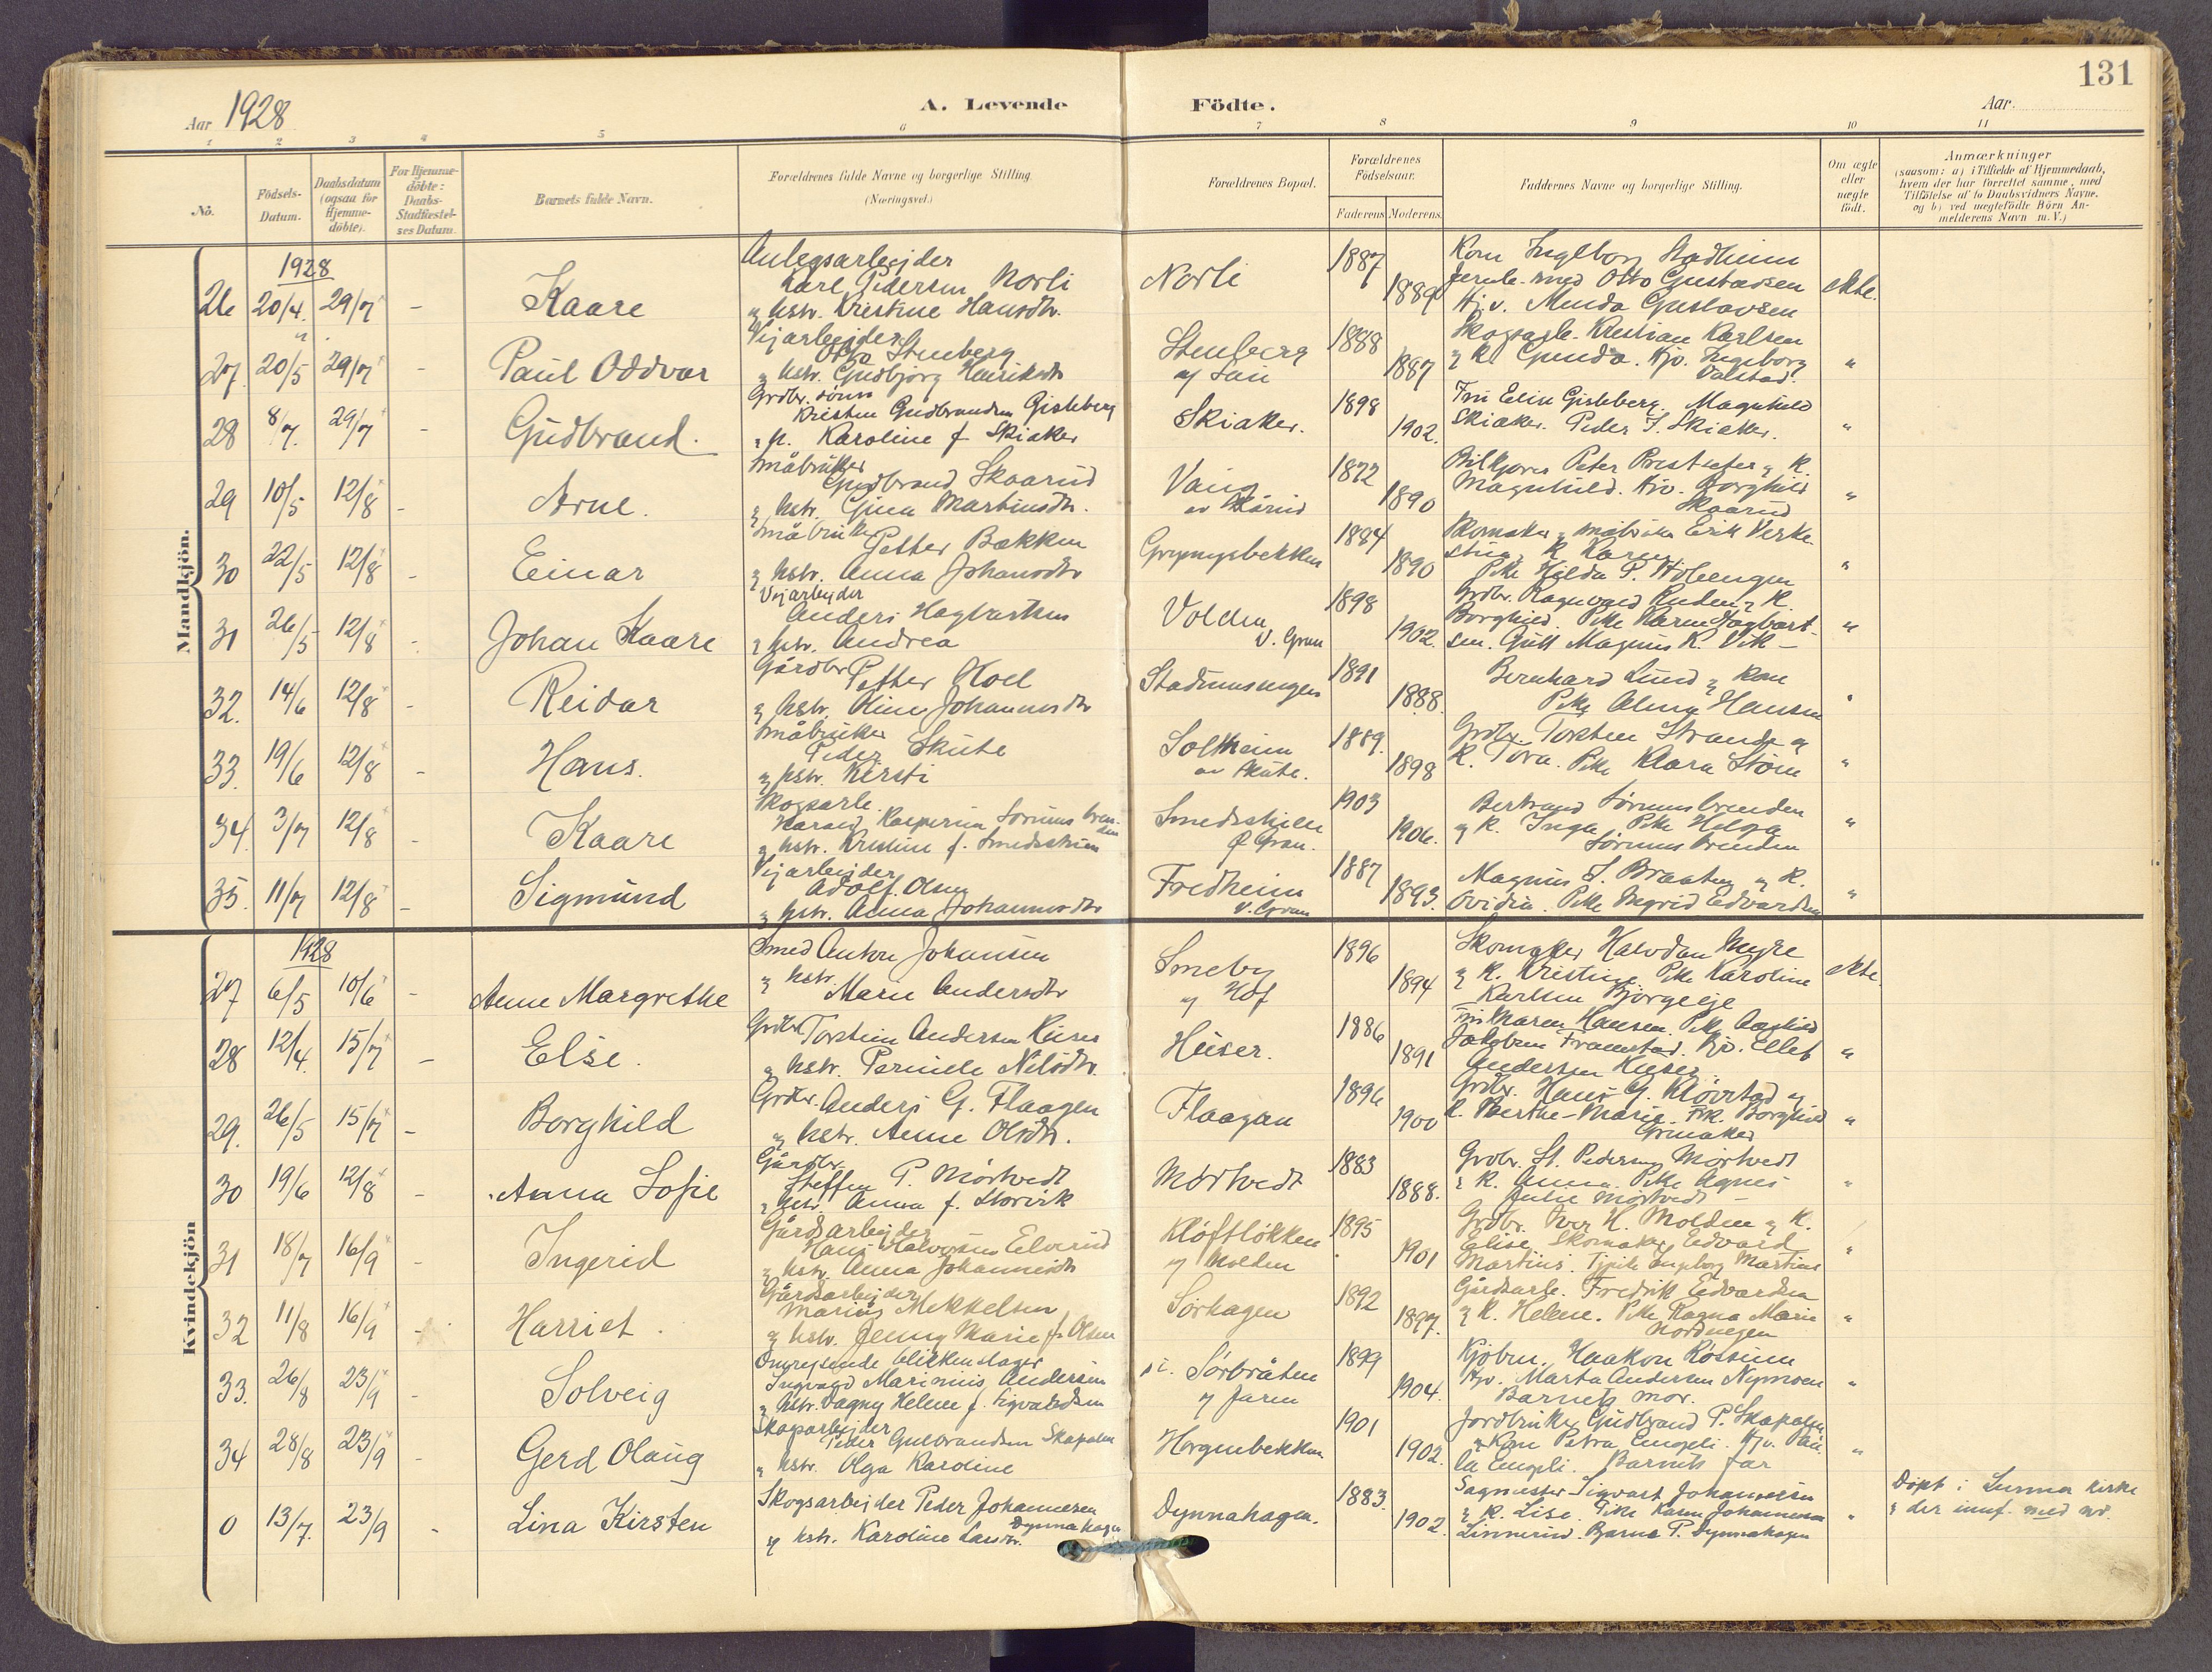 131
Aar 1928
A. Levende Födte.
Aar
1 2 3 4 5 6 7 8 9 10 11
No.
Födsels-Datum.
Daabsdatum (ogsaa for Hjemme-döbte).
For Hjemme-döbte: Daabs-Stadfæstel-ses Datum.
Barnets fulde Navn.
Forældrenes fulde Navne og borgerlige Stilling.
(Næringsvei.)
Forældrenes Bopæl.
Forældrenes Födselsaar.
Faderens Moderens
Faddernes Navne og borgerlige Stilling.
Om ægte eller uægte födt.
Anmærkninger
(saasom: a) i Tilfælde af Hjemmedaab,
hvem der har forrettet samme, med
Tilföielse af to Daabsvidners Navne.
og b) ved uægtefödte Börn An-
melderens Navn m. V.)
Mandkjön.
1928
26 20/4 29/7 - Kaare
Anlegsarbejder
Karl Pedersen Norli
og hstr. Kristine Hansdtr.
Norli 1887 1889
Kom Ingeborg Stadheim
Jernb. med Otto Gustavsen
Kjv. Minda Gustavsen
ekte.
27. 20/5 29/7 - Paul Oddvar
Vejarbejder
Otto Stenberg
og hstr. Gudbjørg Henriksdtr
Stenberg
1888 1887
Skogsarb. Kristian Karlsen
og K. Gunda. Kjv. Ingeborg
Valstad.
"
28 8/7. 29/7 - Gudbrand.
Grdbr. sønn
Kristen Gudbrandsen Gisleberg
Karoline f. Skiaker
Skiaker. 1898 1902.
Fru Elise Gisleberg. Magnhild
Skiaker. Peder J. Skiaker.
"
29 10/5 12/8 - Arne.
Småbruker
Gudbrand Skaarud
og hstr. Gina Martinsdtr.
Vang
1872 1890
Bilkjører Peter Prestsæter og K.
Magnhild. Kjv. Borghild
Skaarud
"
30 22/5 12/8 - Einar
Småbruker
Petter Bækken
og hstr. Anna Johansdtr
Grymyrbekken 1884 1890
Skomaker og småbruker Erik Verke-
stue og K. Karen
Pike Hilda P.
"
31 26/5 12/8 - Johan Kaare
Vejarbejder
Anders Hagbartsen
og hstr. Andrea
Volden
V. Gran
1898 1902.
Grdbr. Ragnvald Ruden og K.
Borghild. Pike Karen Hagbart-
sen. Gutt Magnus K. Vik -
"
32. 14/6 12/8 - Reidar
Gårdbr
Petter Hoel
og hstr. Oline Johannesdtr
1891 1888.
Bernhard Lund og kone
Pike Alma Hansen
"
33. 19/6 12/8 - Hans.
Småbruker
Peder Skute
og hstr. Kirsti
Solheim
av Skute.
1889. 1898
Grdbr. Torsten Strande og
K. Tora. Pike Klara Strøm
"
34. 3/7 12/8 - Kaare
Skogsarb.
Harald Kaspersen Sørumsbren-
den
og hstr. Kristine f. Smedsskien
Ø. Gran.
1903 1906.
Bertrand Sørumsbrenden
og K. Inga Pike Helga
Sørumsbrenden
"
35. 11/7 12/8 - Sigmund
Vejarbejder
Adolf Olsen
og hstr. Anna Johannesdtr
Fredheim
V. Gran
1887 1893.
Magnus J. Braaten og K.
Ovidia. Pike Ingrid Edvardsen
"
Kvindekjön
1928
27 6/5 10/6 - Anne Margrethe
Smed Anton Johansen
og hstr.
Marie Andersdtr
Smeby
og Hof
1896 1894
Skomaker Halvdan Myhre
og K. Kristine Pike Karoline
Karlsen Bjørgeeje
ekte.
28 12/4. 15/7 - Else.
Grdbr Torstein Andersen Huser
og hstr. Pernille Nilsdtr.
Huser. 1886 1891
Fru Maren Hansen. Pike Aashild
Jakobsen Framstad. Kjv. Ellef
Andersen Huser
"
29. 26/5 15/7 - Borghild
Grdbr. Anders G. Flaagen
og hstr. Anne Olsdtr.
Flaagan 1896 1900
Grdbr. Hans G. Kløvstad og
K. Berthe-Marie. Frk. Borghild
Grinaker
"
30 19/6 12/8 - Anna Sofie
Gårdbr.
Steffen P. Mörtvedt
og hstr. Anna f. Storvik
Mörtvedt 1883 1888.
Grdbr. St. Pedersen Mörtvedt
og K. Anna. Pike Agnes
Julie Mörtvedt -
"
31 18/7 16/9 - Ingerid
Gårdsarbejder
Hans Halvorsen Elverud
og hstr. Anna Johannesdtr
Kløftløkken
og Molden
1895 1901
Grdbr. Iver H. Molden og K.
Elise, Skomaker Edvard
Martins. Tjpike Ingeborg Martins
"
32 11/8 16/9 - Harriet.
Gårdsarbejder
Marius Mikkelsen
og hstr. Jenny Marie f. Olsen
Sørhagen 1892 1897.
Gårdsarb. Fredrik Edvardsen
og K. Helene. Pike Ragna Marie
Nordengen
"
33. 26/8 23/9 - Solveig
Omrejsende blikkenslager
Ingvald Marinius Andersen
og hstr. Dagny Helene f. Sigvaldsen
Sørbråten
og Jaren
1899 1904.
Kjøbm. Haakon Røssum
Kjv. Marta Andersen Nymoen
Barnets mor.
"
34 28/8 23/9 - Gerd Olaug
Skogsarbejder
Peder Gulbrandsen Skapalen
og hstr. Olga Karoline
Horgenbekken 1901 1902.
Jordbruker Gudbrand P. Skapalen
og Kone Petra Engeli. Kjv. Pau-
la Engeli. Barnets far
"
0 13/7. 23/9 - Lina Kirsten
Skogsarbejder Peder Johannesen
Dynnahagen
og hstr. Karoline Larsdtr.
Dynnahagen. 1883. 1902.
Sagmester Sigvart Johannesen
og K. Lise. Pike Karen Johannesen
Linnerud. Bjarne P. Dynnahagen
"
Døpt i Lunner kirke
og der innf. med nr.